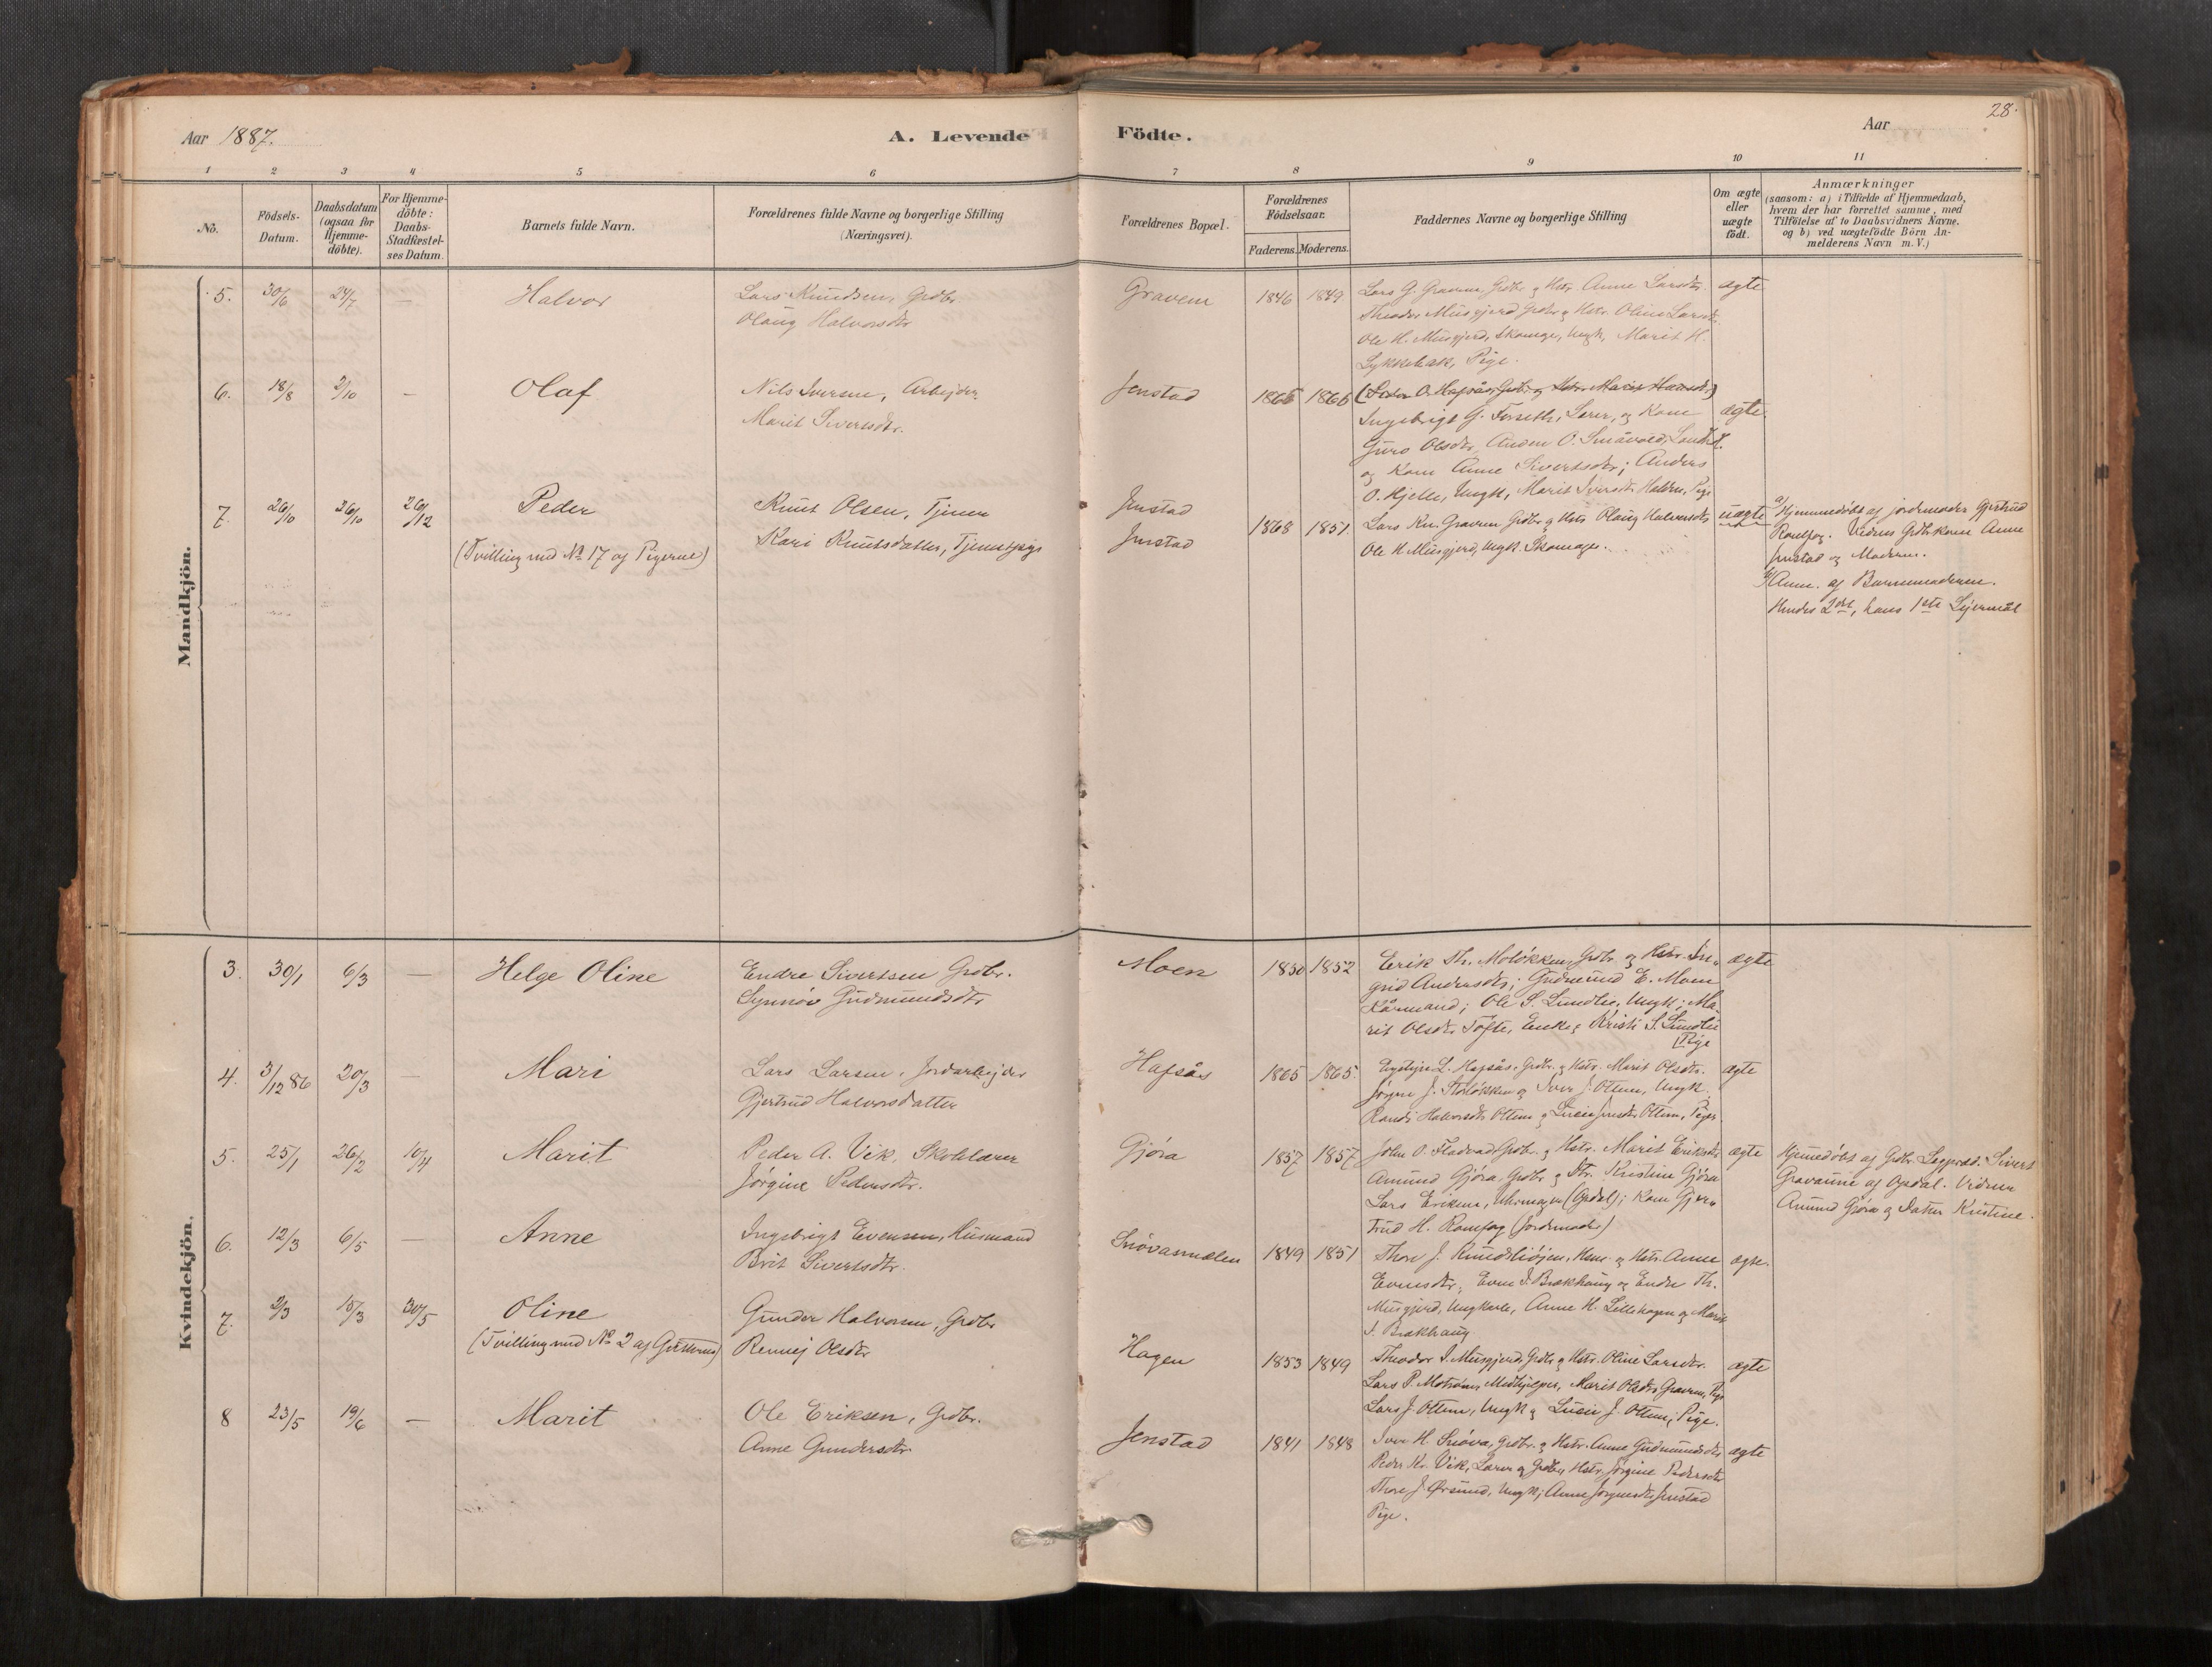 Aar 1887.
A. Levende Födte.
Aar
28.
1 2 3 4 5 6 7 8 9 10 11
No.
Födsels-Datum.
Daabsdatum (ogsaa for Hjemmedöbte).
For Hjemmedöbte: Daabs-Stadfæstelses Datum.
Barnets fulde Navn.
Forældrenes fulde Navne og borgerlige Stilling (Næringsvei).
Forældrenes Bopæl.
Forældrenes Födselsaar.
Faderens. Moderens.
Faddernes Navne og borgerlige Stilling
Om ægte eller uægte födt.
Anmærkninger
(saasom: a) i Tilfælde af Hjemmedaab,
hvem der har forrettet samme, med
Tilföielse af to Daabsvidners Navne.
og b) ved uægtefödte Börn An-
melderens Navn m. V.)
Mandkjön.
5. 30/6 24/7 — Halvor
Lars Knudsen, Grdbr.
Olaug Halvorsdtr
Gravem 1846 1849
Lars G. Gravem Grdbr. og Hstr. Anne Larsdtr.
Theodor Musgjerd Grdbr og Hstr. Oline Larsdtr.
Ole H. Musgjerd, Skomager, Ungk, Marit H.
Lykkebak, Pige.
ægte
6. 18/8 2/10 — Olaf
Nils Iversen, Arbejder
Marit Sivertsdtr.
Jenstad 1865 1866
(Peder O. Hafsås, Grdbr og Hstr. Marit Hansdtr)
Ingebrigt G. Forseth, Lærer, og Kone
Guro Olsdtr, O. Småvold,
og Kone Anne Sivertsdtr; Anders
O. Hjelle, Ungk, Marit Iversdtr Pige
ægte.
7. 26/10 36/10 26/12 Peder
(Tvilling med No 17 af Pigerne)
Knut Olsen, Tjener
Kari Knutsdatter, Tjenestpige
Jenstad
Jenstad
1868 1851.
Lars Kn. Gravem Grdbr og Hstr Olaug Halvorsdtr
Ole H Musgjerd, Ungk. Skomager.
uægte
a) Hjemmedöbt af jordemoder Gjertrud
Romfog. Vidner Grdbrkone Anne
Jenstad og Moderen.
b) Anm. af Barnemoderen.
Hendes 2det, hans 1ste Lejermål
Kvindekjön.
3. 30/1 6/3 — Helge Oline
Endre Sivertsen Grdbr.
Synnöv Gudmundsdtr
Moen 1850 1852
Erik Th. Molökken, Grdbr. og Hstr. In-
grid Andersdtr; Gudmund E. Moen
Kårmand; Ole S. Lundlie, Ungk; Ma-
rit Olsdtr Tofte, Enke, Kristi S. Lundlie
Pige
ægte
4. 3/12 86 20/3 — Mari
Lars Larsen, Jordarbejder
Gjertrud Halvorsdatter
Hafsås 1865 1865.
L. Hafsås, Grdbr. og Hstr. Marit Olsdtr.
Jörgen J. Storlökken og Iver J. Ottem, Ungk.
Randi Halvorsdtr Ottem og Ottem, Piger
ægte
5. 25/1 26/2 10/4 Marit
Peder A. Vik, Skolelærer
Jörgine Pedersdtr.
Gjöra 1857 1857
John O. Fladvad, Grdbr. og Hstr. Marit Eriksdtr
Amund Gjöra, Grdbr og Dtr. Kristine Gjöra
Lars Eriksen, Uhrmager (Opdal); Kone Gjer-
trud H. Romfog (Jordemoder)
ægte
Hjemedöbt af Grdbr. Sivert
af Opdal. Vidner
Amund Gjöra og Datter Kristine.
6. 12/3 6/5 — Anne
Ingebrigt Evensen, Husmand
Brit Sivertsdtr.
Snövasmælen 1849 1851
Thore J. Hsm. og Hstr. Anne
Evensdtr; Even I. Brækhaug og Endre Th.
Musgjerd, Ungkarle, Anne H. Lillehagen og Marit
I. Brækhaug
ægte.
7. 2/3 15/3 30/5 Oline
(Tvilling med No 2 af Gutterne)
Gunder Halvorsen, Grdbr
Rennej Olsdtr
Hagen 1853 1849
Theodor I. Musgjerd, Grdbr og Hstr. Oline Larsdtr.
Lars P. Medhjelper, Marit Olsdtr Gravem, Pige
Lars J. Ottem, Ungk og J. Ottem, Pige.
ægte
8 23/5 19/6 — Marit
Ole Eriksen, Grdbr.
Anne Gundersdtr.
Jenstad 1841 1848
Iver H. Snöva, Grdbr. og Hstr. Anne Gudmundsdtr
Peder Kr. Vik, Lærer og Grdbr, Hstr. Jörgine Pedersdtr
Thore J. Ørsund, Ungk; Anne Jörgensdtr Jenstad
Pige.
ægte